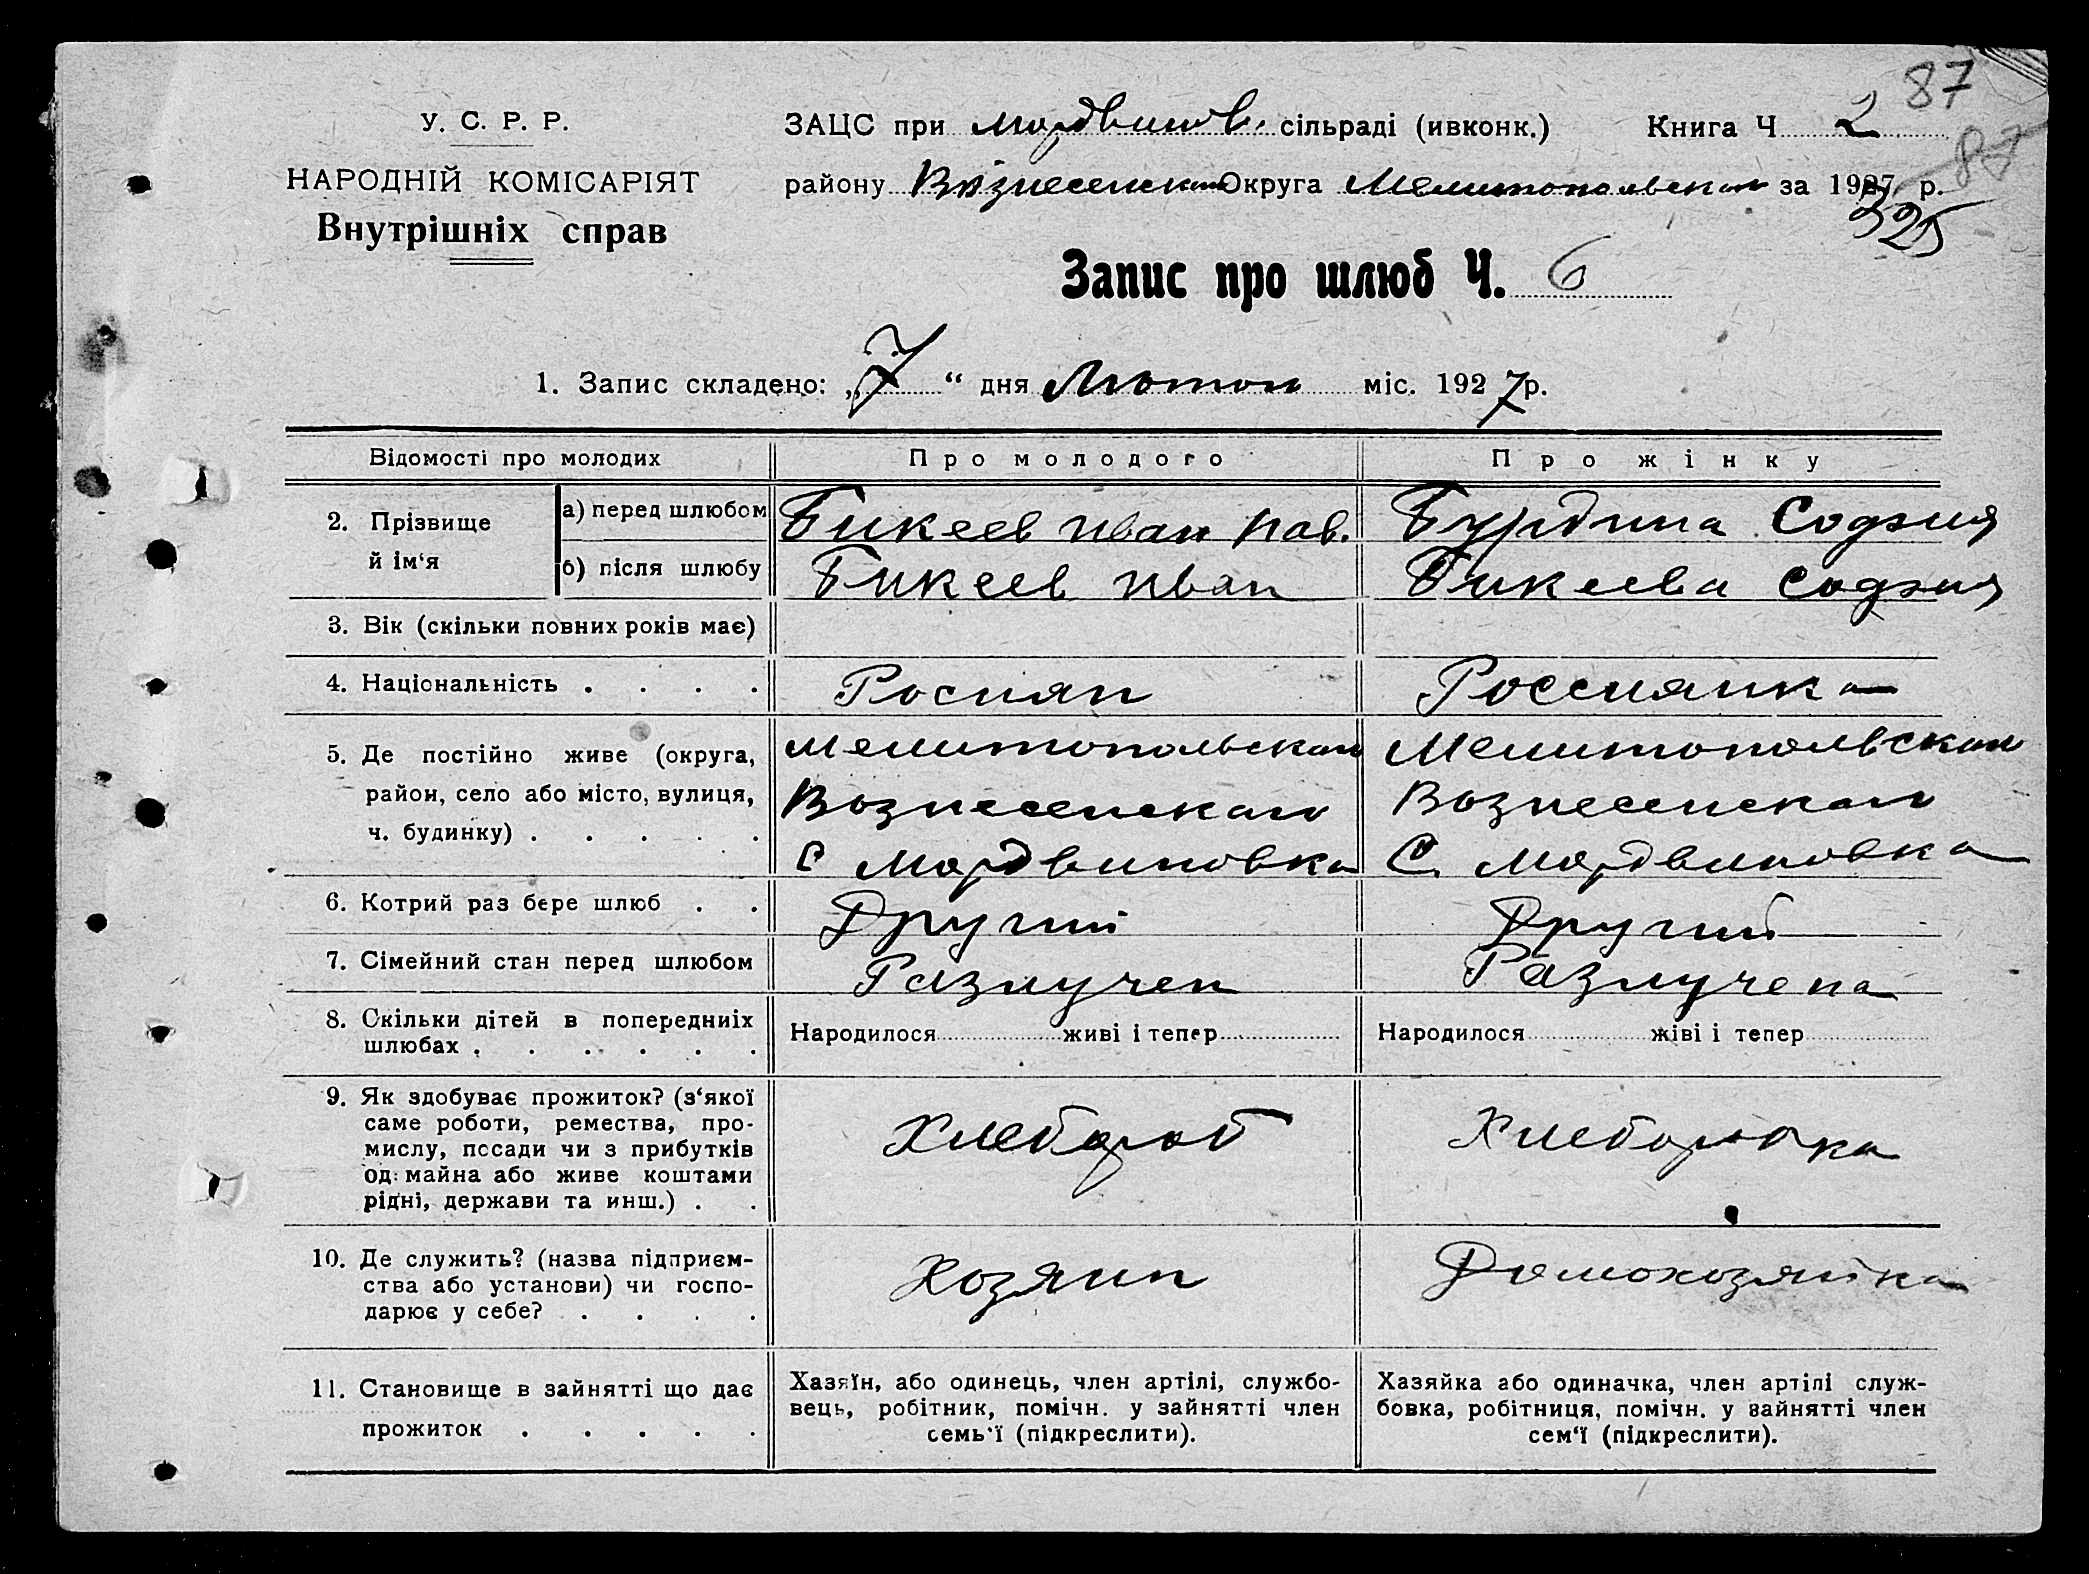 87
У. С. Р. Р.
НАРОДНІЙ КОМІСАРІЯТ
Внутрішніх справ
ЗАЦС при Мордвинов. сільраді (ивконк.) Книга Ч 2
87
району Вознесенском Округа Мелитопольской за 1927 р.
325
Запис про шлюб Ч. 6
1. Запис складено: „7“ дня Лютого міс. 1927 р.
Відомості про молодих Про молодого Про жінку
2. Прізвище й ім‘я
а) перед шлюбом Бикеев Иван Пав. Бурдина София
б) після шлюбу Бикеев Иван Бикеева София
3. Вік (скільки повних років має)
4. Національність . . . . Росиян Россиянка
5. Де постійно живе (округа, Мелитопольская Мелитопольская
район, село або місто, вулиця, Вознесенского Вознесенского
ч. будинку) . . . . . С Мордвиновка С. Мордвиновка
6. Котрий раз бере шлюб . . Другий Другий
7. Сімейний стан перед шлюбом Разлучен Разлучена
8. Скільки дітей в попередниіх Народилося живі і тепер Народилося жіві і тепер
шлюбах . . . . . .
9. Як здобуває прожиток? (з‘якої
саме роботи, ремества, про-
мислу, посади чи з прибутків Хлебороб Хлеборобка
од майна або живе коштами
рідні, держави та инш.) . .
10. Де служить? (назва підприєм-
ства або установи) чи госпо- Хозяин Домохозяйка
дарює у себе? . . . .
11. Становище в зайнятті що дає
прожиток . . . . .
Хазяїн, або одинець, член артілі, службо-
вець, робітник, помічн. у зайнятті член
семь‘ї (підкреслити).
Хазяйка або одиначка, член артілі служ-
бовка, робітниця, помічн. у зайнятті член
сем‘ї (підкреслити).